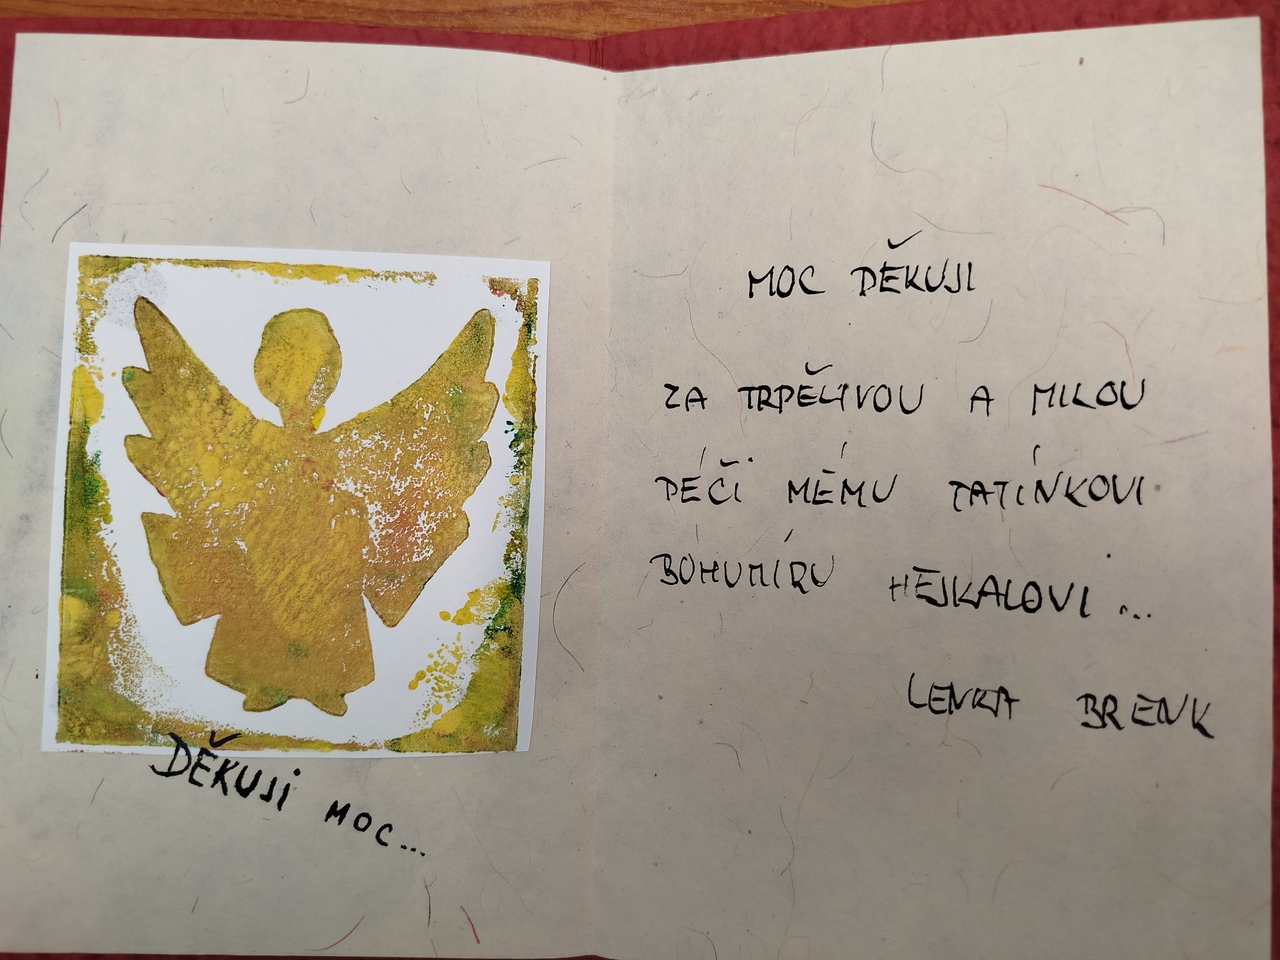 DĚKUJI MOC...
MOC DĚKUJI
ZA TRPĚLIVOU A MILOU
PÉČI MÉMU TATÍNKOVI
BOHUMÍRU HEJKALOVI...
LENKA BRENK